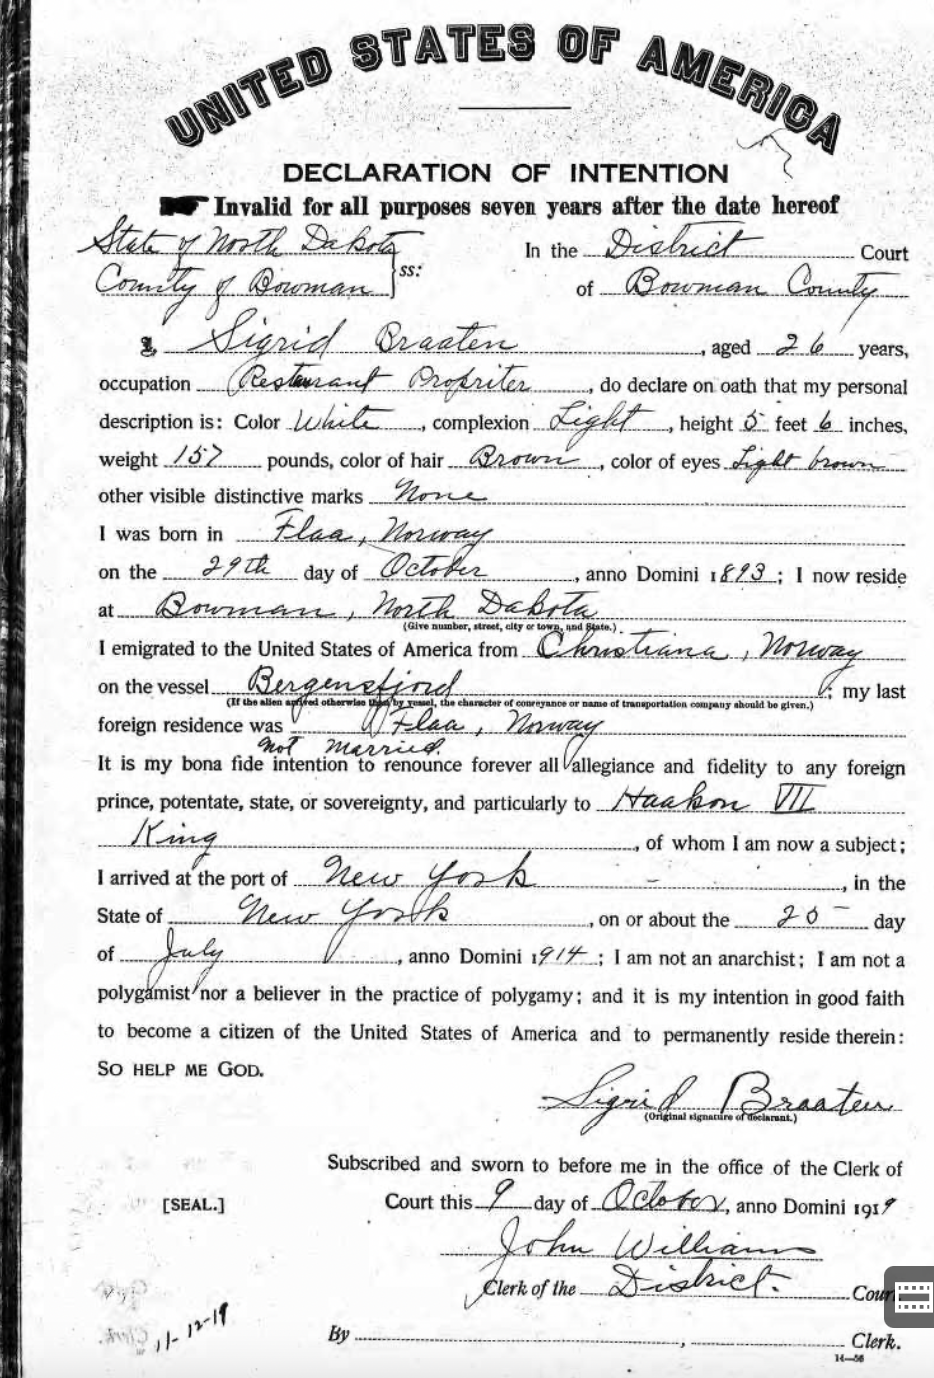 UNITED STATES OF AMERICA
DECLARATION OF INTENTION
Invalid for all purposes seven years after the date hereof
State of North Dakota
County of Bowman
ss:
In the District Court
of Bowman County
I, Sigrid Braaten, aged 26 years,
occupation Restaurant Propriter, do declare on oath that my personal
description is: Color White, complexion Light, height 5 feet 6 inches,
weight 157 pounds, color of hair Brown, color of eyes Light brown
other visible distinctive marks None
I was born in Flaa, Norway
on the 29th day of October, anno Domini 1893; I now reside
at Bowman, North Dakota
(Give number, street, city or town, and State.)
I emigrated to the United States of America from Christiana, Norway
on the vessel Bergensfjord; my last
(If the alien arrived otherwise than by vessel, the character of conveyance or name of transportation company should be given.)
foreign residence was Flaa, Norway
not married.
It is my bona fide intention to renounce forever all allegiance and fidelity to any foreign
prince, potentate, state, or sovereignty, and particularly to Haakon VII
King, of whom I am now a subject;
I arrived at the port of New York, in the
State of New York, on or about the 20 day
of July, anno Domini 1914; I am not an anarchist; I am not a
polygamist nor a believer in the practice of polygamy; and it is my intention in good faith
to become a citizen of the United States of America and to permanently reside therein:
SO HELP ME GOD.
Sigrid Braaten
(Original signature of declarant.)
Subscribed and sworn to before me in the office of the Clerk of
[SEAL.]
Court this 9 day of October, anno Domini 1919
John Williams
Clerk of the District. Court
11-12-19
By , Clerk.
14—56